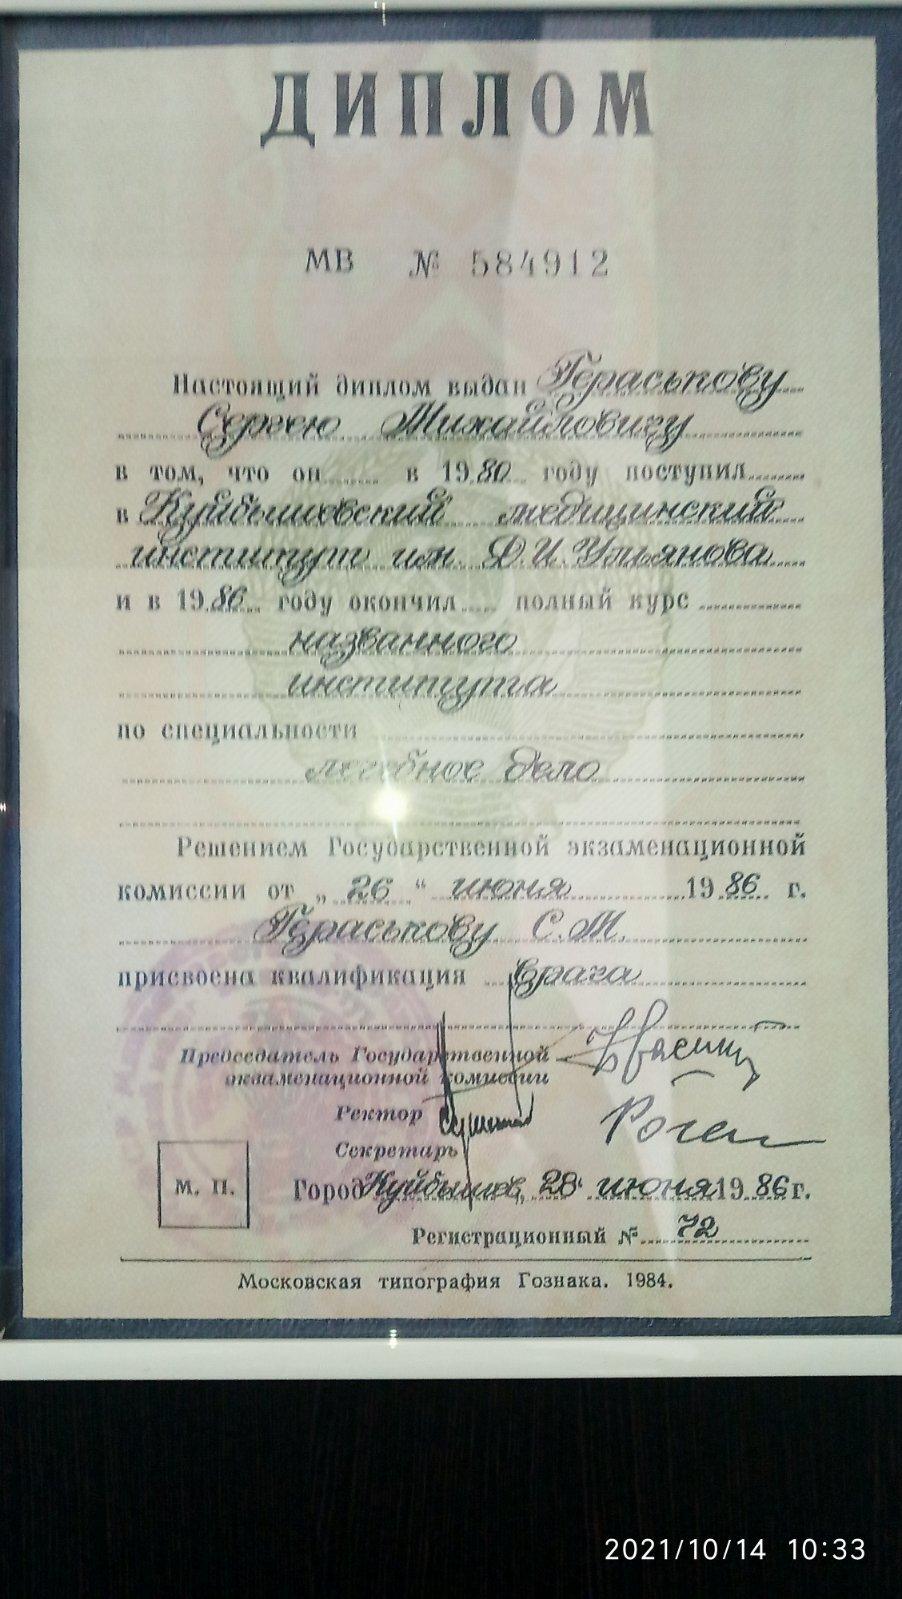 ДИПЛОМ
МВ № 584912
Настоящий диплом выдан Гераськову
Сергею Михайловичу
в том, что он в 1980 году поступил
в Куйбышевский медицинский
институт им. Д.И. Ульянова
и в 1986 году окончил полный курс
названного
института
по специальности
лечебное дело
Решением Государственной экзаменационной
комиссии от „26“ июня 1986 г.
Гераськову С.М.
присвоена квалификация врача
Председатель Государственной
экзаменационной комиссии
Ректор
Секретарь
М. П.
Город Куйбышев, 28 июня 1986 г.
Регистрационный № 72
Московская типография Гознака. 1984.
2021/10/14 10:33